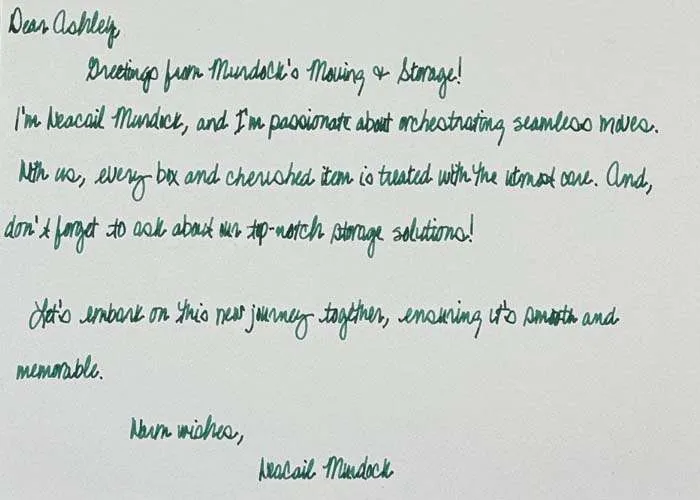 Dear Ashley,
Greetings from Murdock's Moving & Storage!
I'm Neacail Murdock, and I'm passionate about orchestrating seamless moves.
With us, every box and cherished item is treated with the utmost care. And,
don't forget to ask about our top-notch storage solutions!
Let's embark on this new journey together, ensuring it's smooth and
memorable.
Warm wishes,
Neacail Murdock